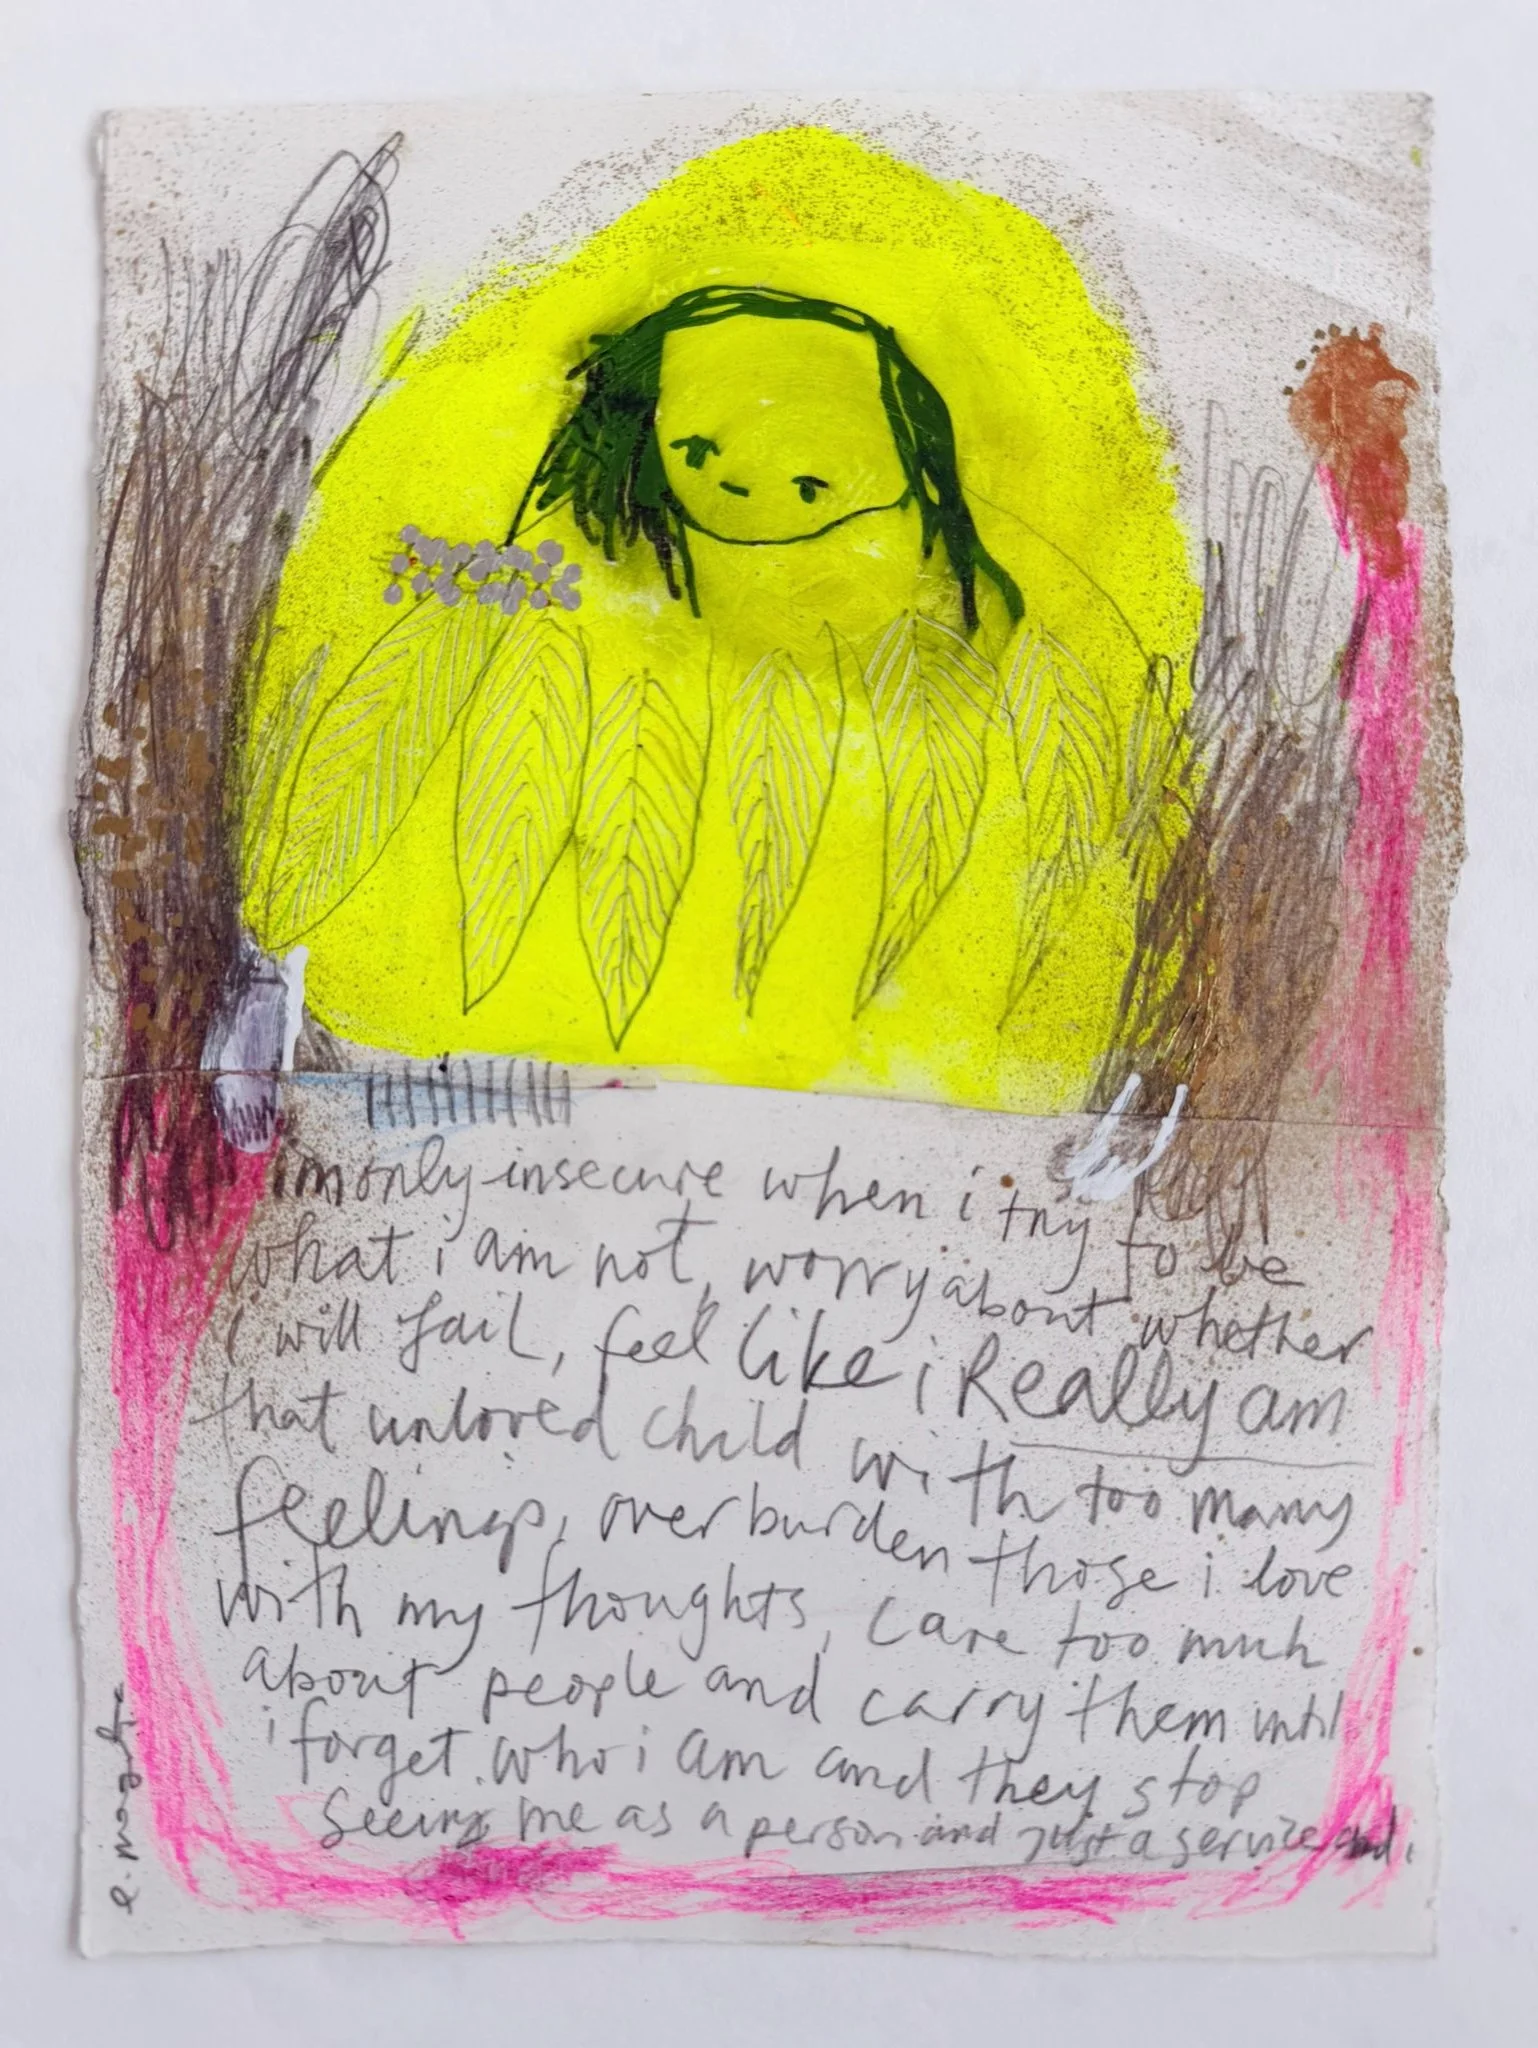 im only insecure when i try to be
what i am not, worry about whether
i will fail, feel like i Really am
that unloved child with too many
feelings, overburden those i love
with my thoughts, care too much
about people and carry them until
i forget who i am and they stop
seeing me as a person and just a service and i
e. mozarte